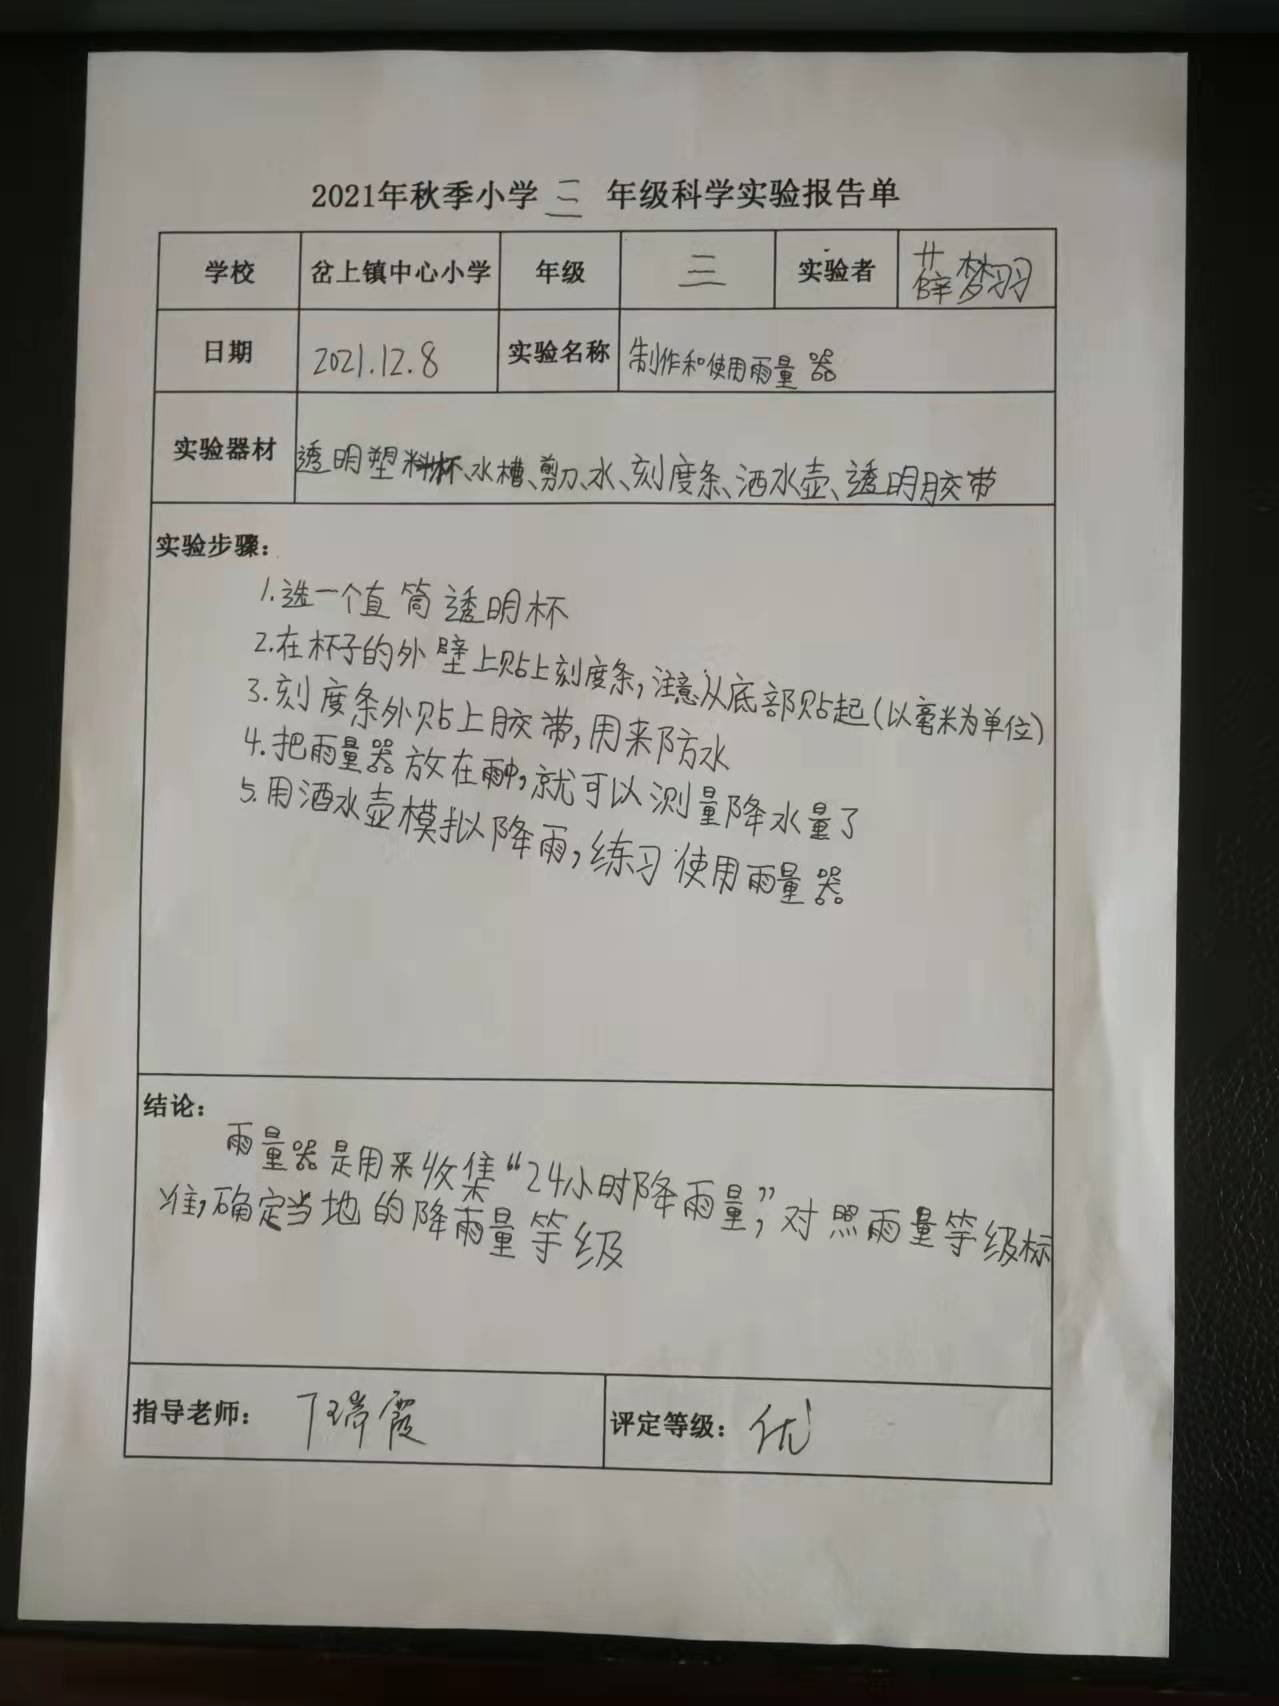 2021年秋季小学 三 年级科学实验报告单
学校 岔上镇中心小学 年级 三 实验者 薛梦羽
日期 2021.12.8 实验名称 制作和使用雨量器
实验器材 透明塑料杯、水槽、剪刀、水、刻度条、洒水壶、透明胶带
实验步骤：
1.选一个直筒透明杯
2.在杯子的外壁上贴上刻度条，注意从底部贴起(以毫米为单位)
3.刻度条外贴上胶带，用来防水
4.把雨量器放在雨中，就可以测量降水量了
5.用洒水壶模拟降雨，练习使用雨量器
结论：
雨量器是用来收集“24小时降雨量”，对照雨量等级标
准，确定当地的降雨量等级
指导老师： 丁瑞霞 评定等级： 优